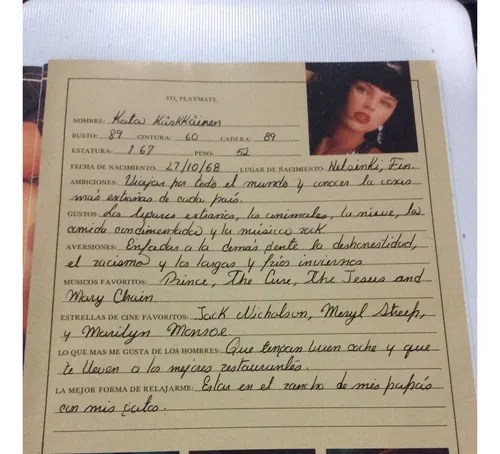 YO, PLAYMATE
NOMBRE: Kata Kärkkäinen
BUSTO: 89 CINTURA: 60 CADERA: 89
ESTATURA: 1.67 PESO: 52
FECHA DE NACIMIENTO: 27/10/68 LUGAR DE NACIMIENTO: Helsinki, Fin.
AMBICIONES: Viajar por todo el mundo y conocer la cosas
más extrañas de cada país.
GUSTOS: Los lugares extraños, los animales, la nieve, la
comida condimentada y la música rock
AVERSIONES: Enfadar a la demás gente, la deshonestidad,
el racismo y los largos y fríos inviernos
MUSICOS FAVORITOS: Prince, The Cure, The Jesus and
Mary Chain
ESTRELLAS DE CINE FAVORITOS: Jack Nicholson, Meryl Streep,
y Marilyn Monroe
LO QUE MAS ME GUSTA DE LOS HOMBRES: Que tengan buen coche y que
te lleven a los mejores restaurantes.
LA MEJOR FORMA DE RELAJARME: Estar en el rancho de mis papás
con mis gatos.